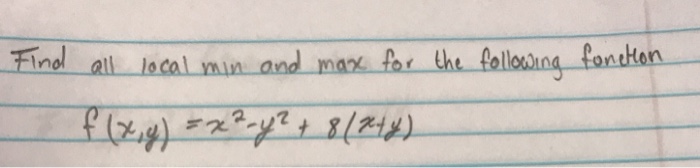 Find all local min and max for the following fonction
f(x,y) = x²-y² + 8(x+y)